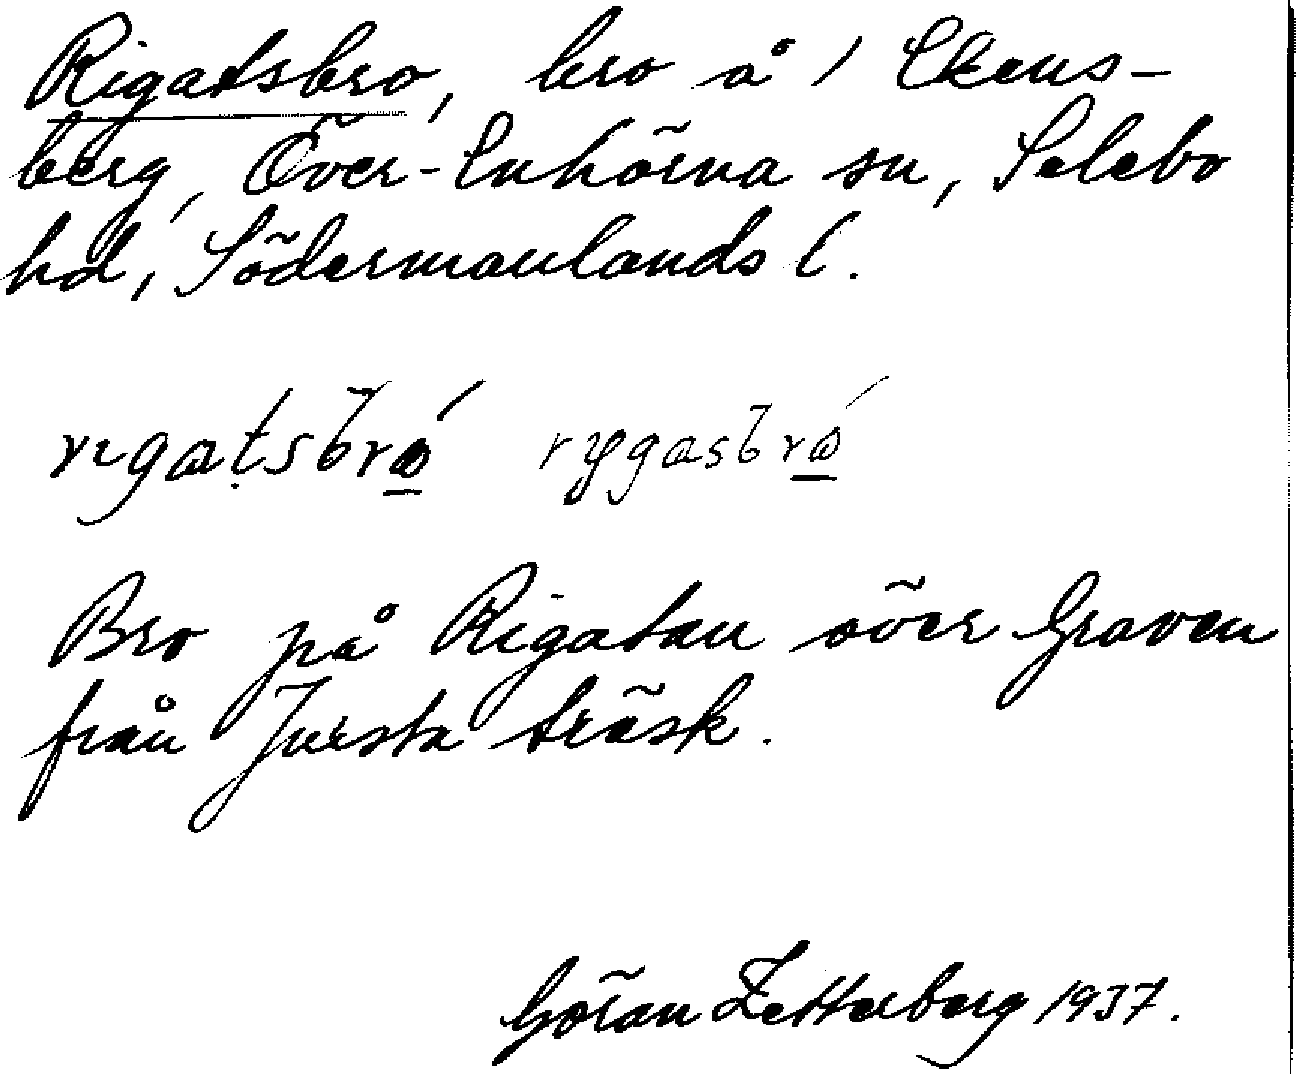 Rigatsbro, bro å / Ekens-
berg, Över-Enhörna sn, Selebo
hd, Södermanlands l.
rıgatsbró rygasbró
Bro på Rigatan över Graven
från Jursta träsk.
Göran Zetterberg 1937.